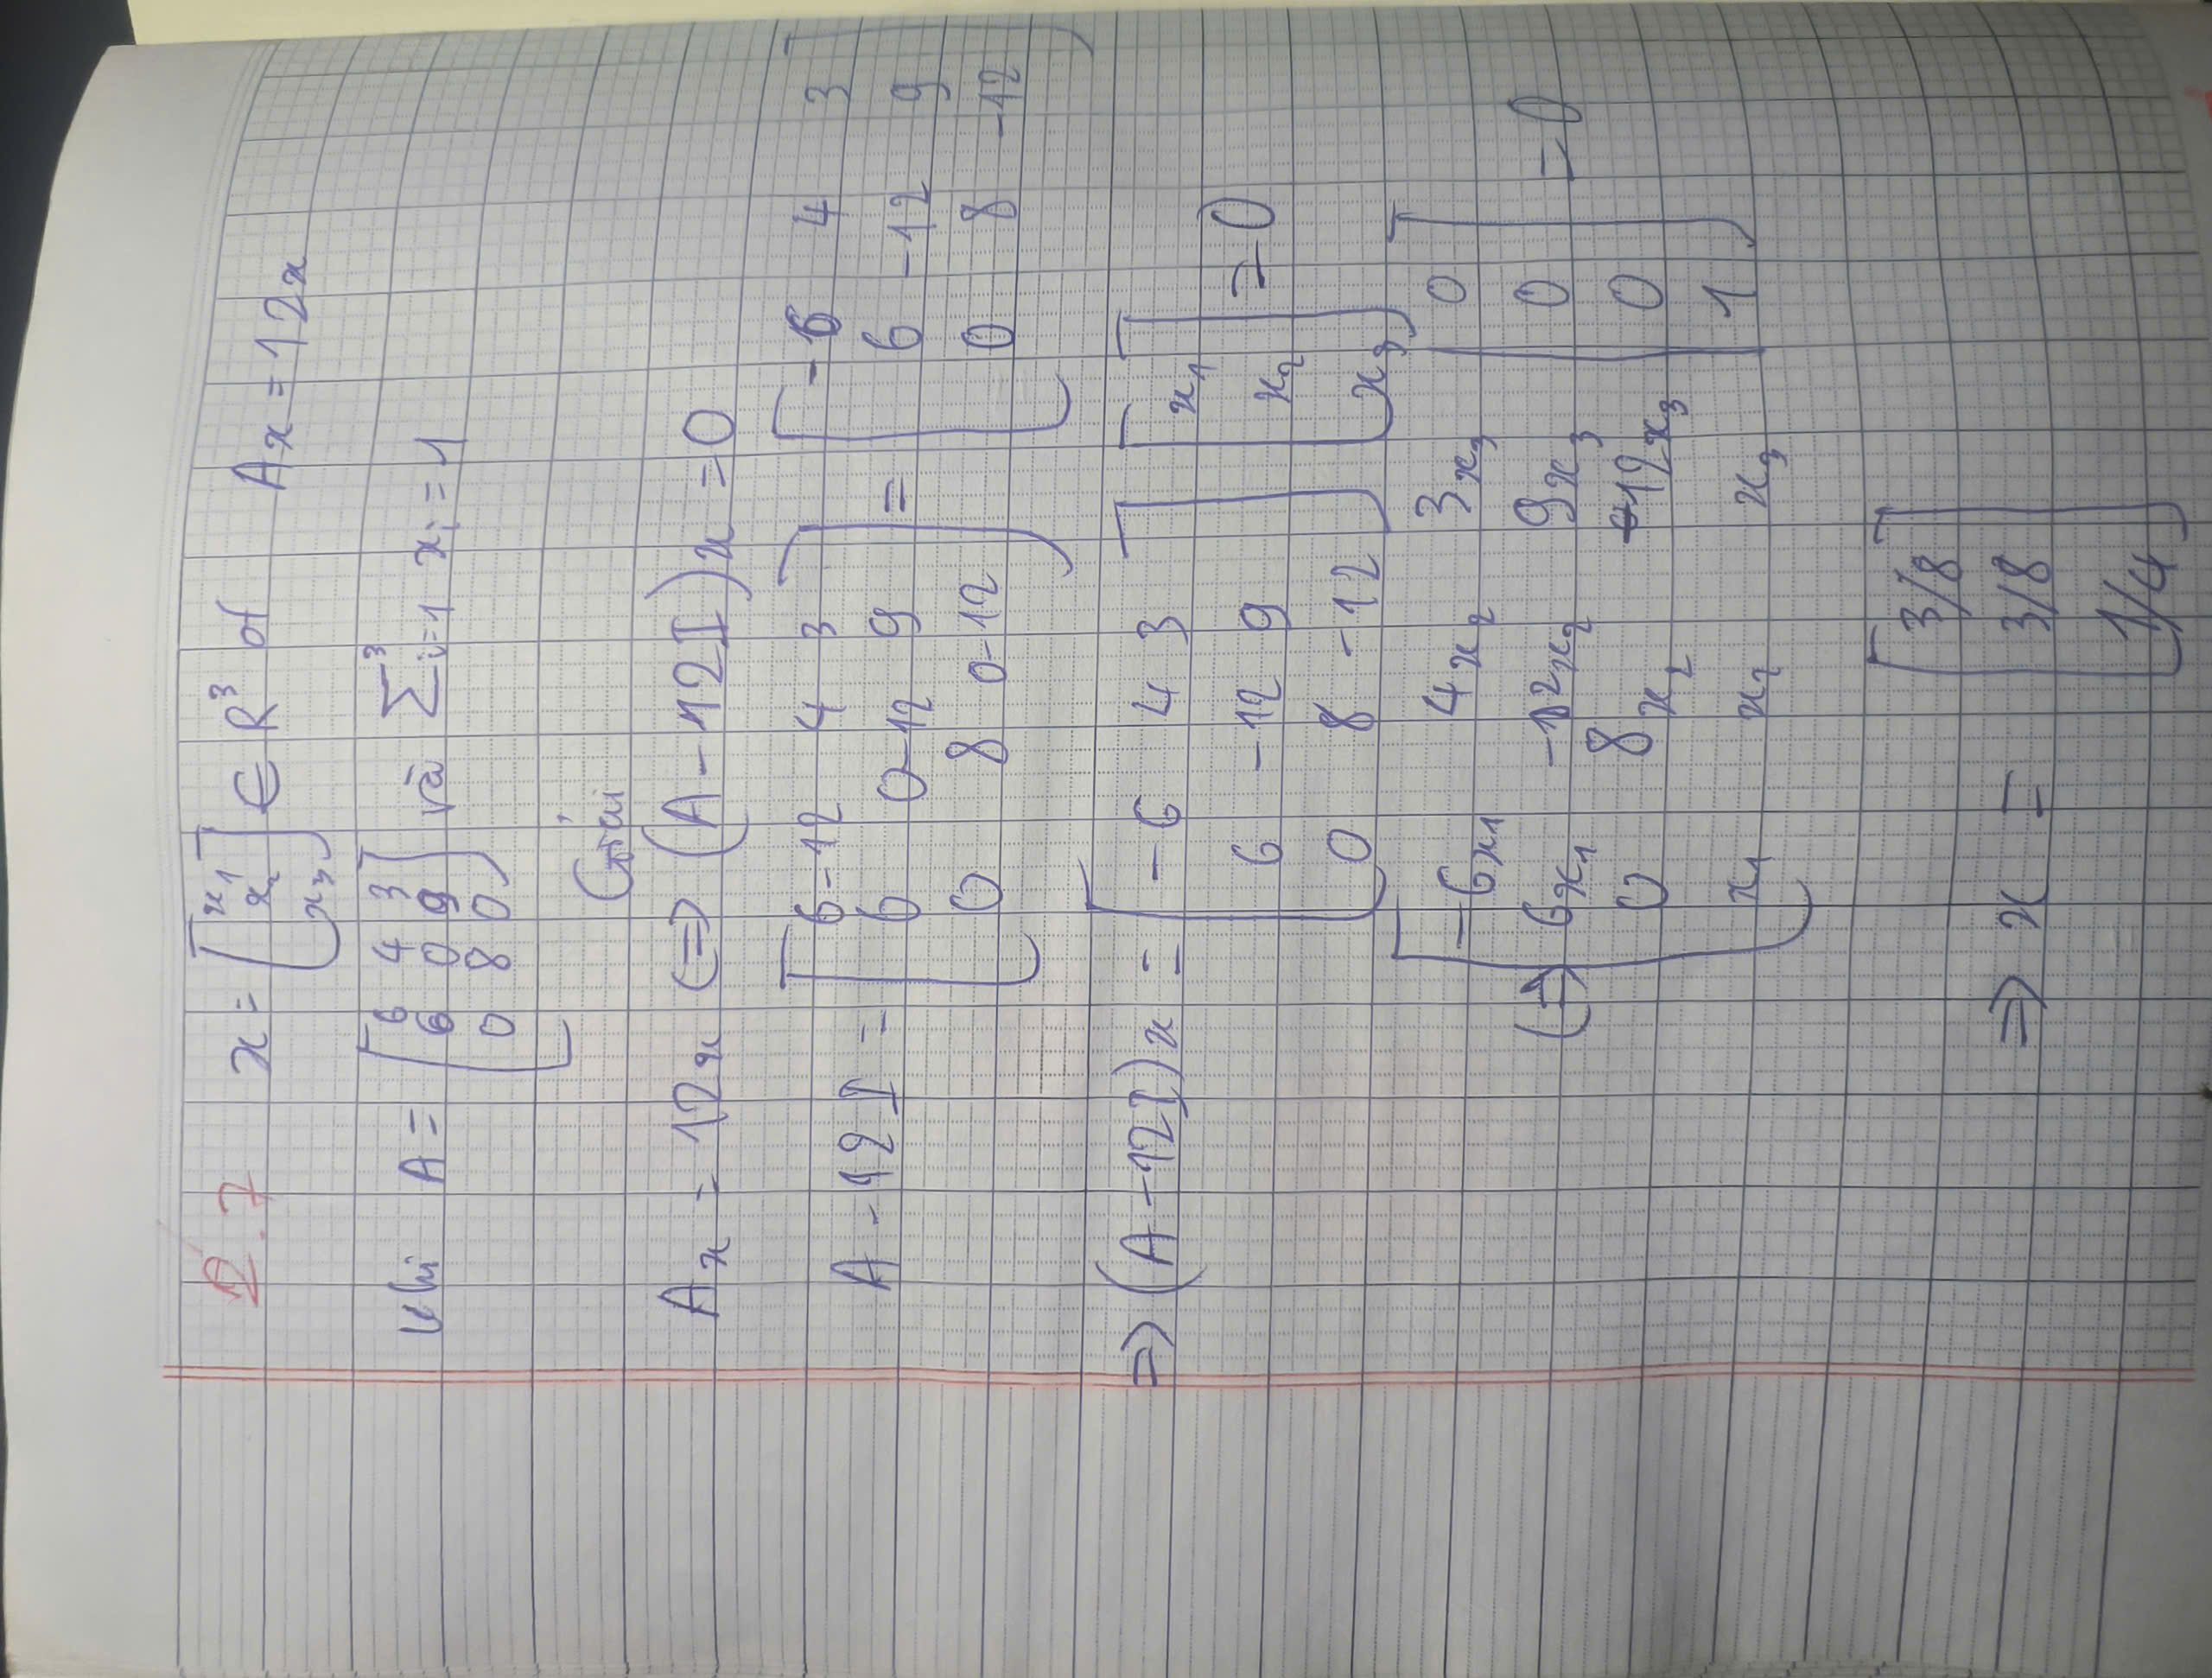 2.7 x = [x₁ x₂ x₃] ∈ R³ of Ax = 12x
khi A = [6 4 3
6 0 9
0 8 0] và Σ³ᵢ₌₁ xᵢ = 1
Giải
Ax = 12x (=) (A - 12I)x = 0
A - 12I = [6-12 4 3
6 0-12 9
0 8 0-12] = [-6 4 3
6 -12 9
0 8 -12]
=> (A - 12I)x = [-6 4 3
6 -12 9
0 8 -12] [x₁
x₂
x₃] = 0
(=) [-6x₁ 4x₂ 3x₃ | 0
6x₁ -12x₂ 9x₃ | 0
0 8x₂ -12x₃ | 0
x₁ x₂ x₃ | 1] = 0
=> x = [3/8
3/8
1/4]